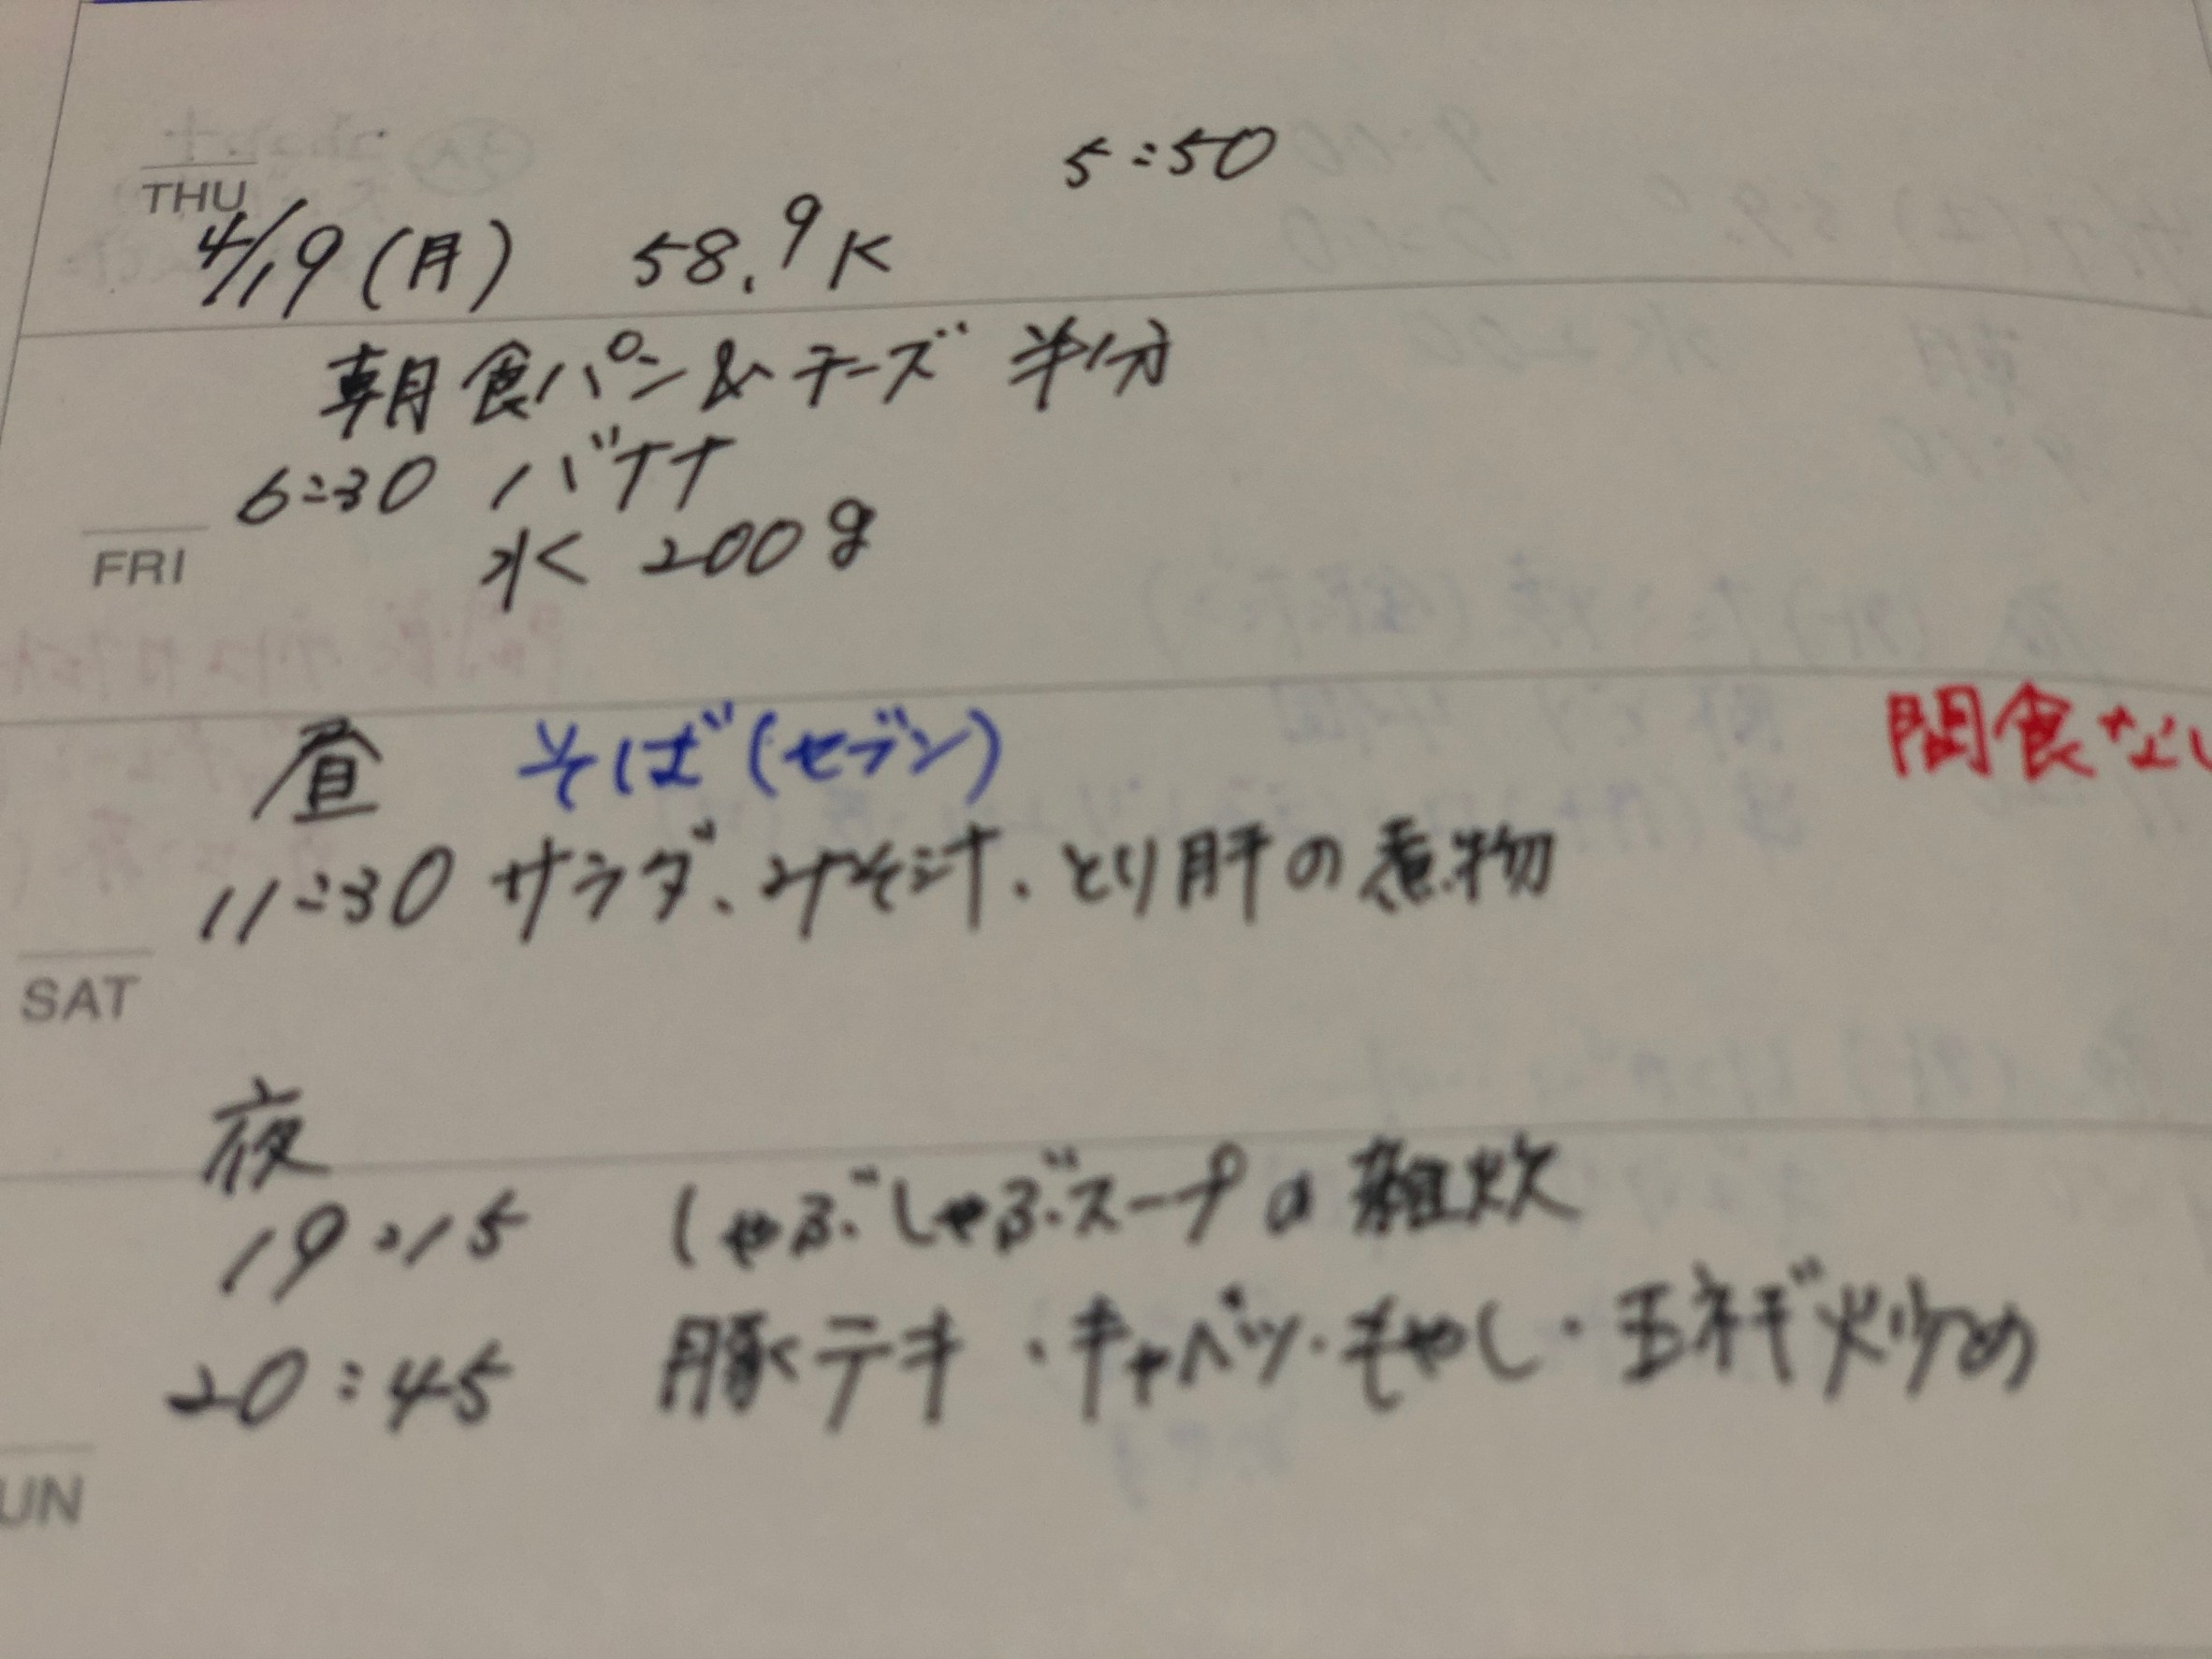 5:50
THU
4/19(月) 58.9K
朝 食パン&チーズ 半分
6:30 バナナ
水 200g
FRI
昼 そば(セブン) 間食なし
11:30 サラダ、みそ汁、とり肝の煮物
SAT
夜
19:15 しゃぶしゃぶスープの雑炊
20:45 豚テキ・キャベツ・もやし・玉ネギ炒め
UN